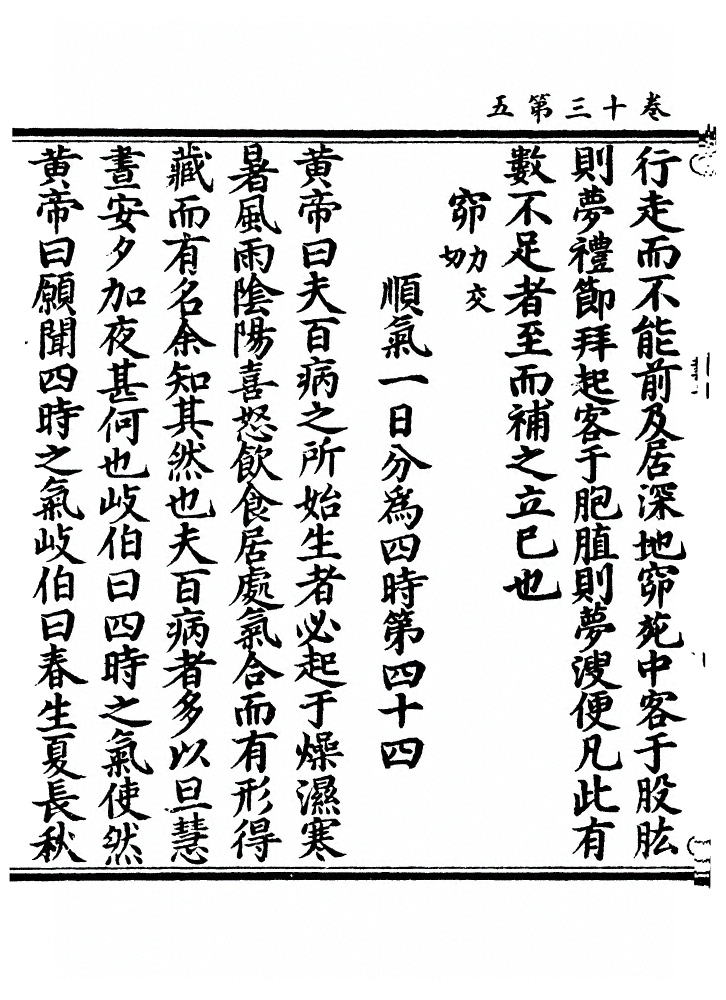 卷十三第五
行走而不能前及居深地窌苑中客于股肱
則夢禮節拜起客于胞䐈則夢溲便凡此有
數不足者至而補之立已也
窌力交切
順氣一日分爲四時第四十四
黃帝曰夫百病之所始生者必起于燥濕寒
暑風雨陰陽喜怒飲食居處氣合而有形得
藏而有名余知其然也夫百病者多以旦慧
晝安夕加夜甚何也岐伯曰四時之氣使然
黃帝曰願聞四時之氣岐伯曰春生夏長秋